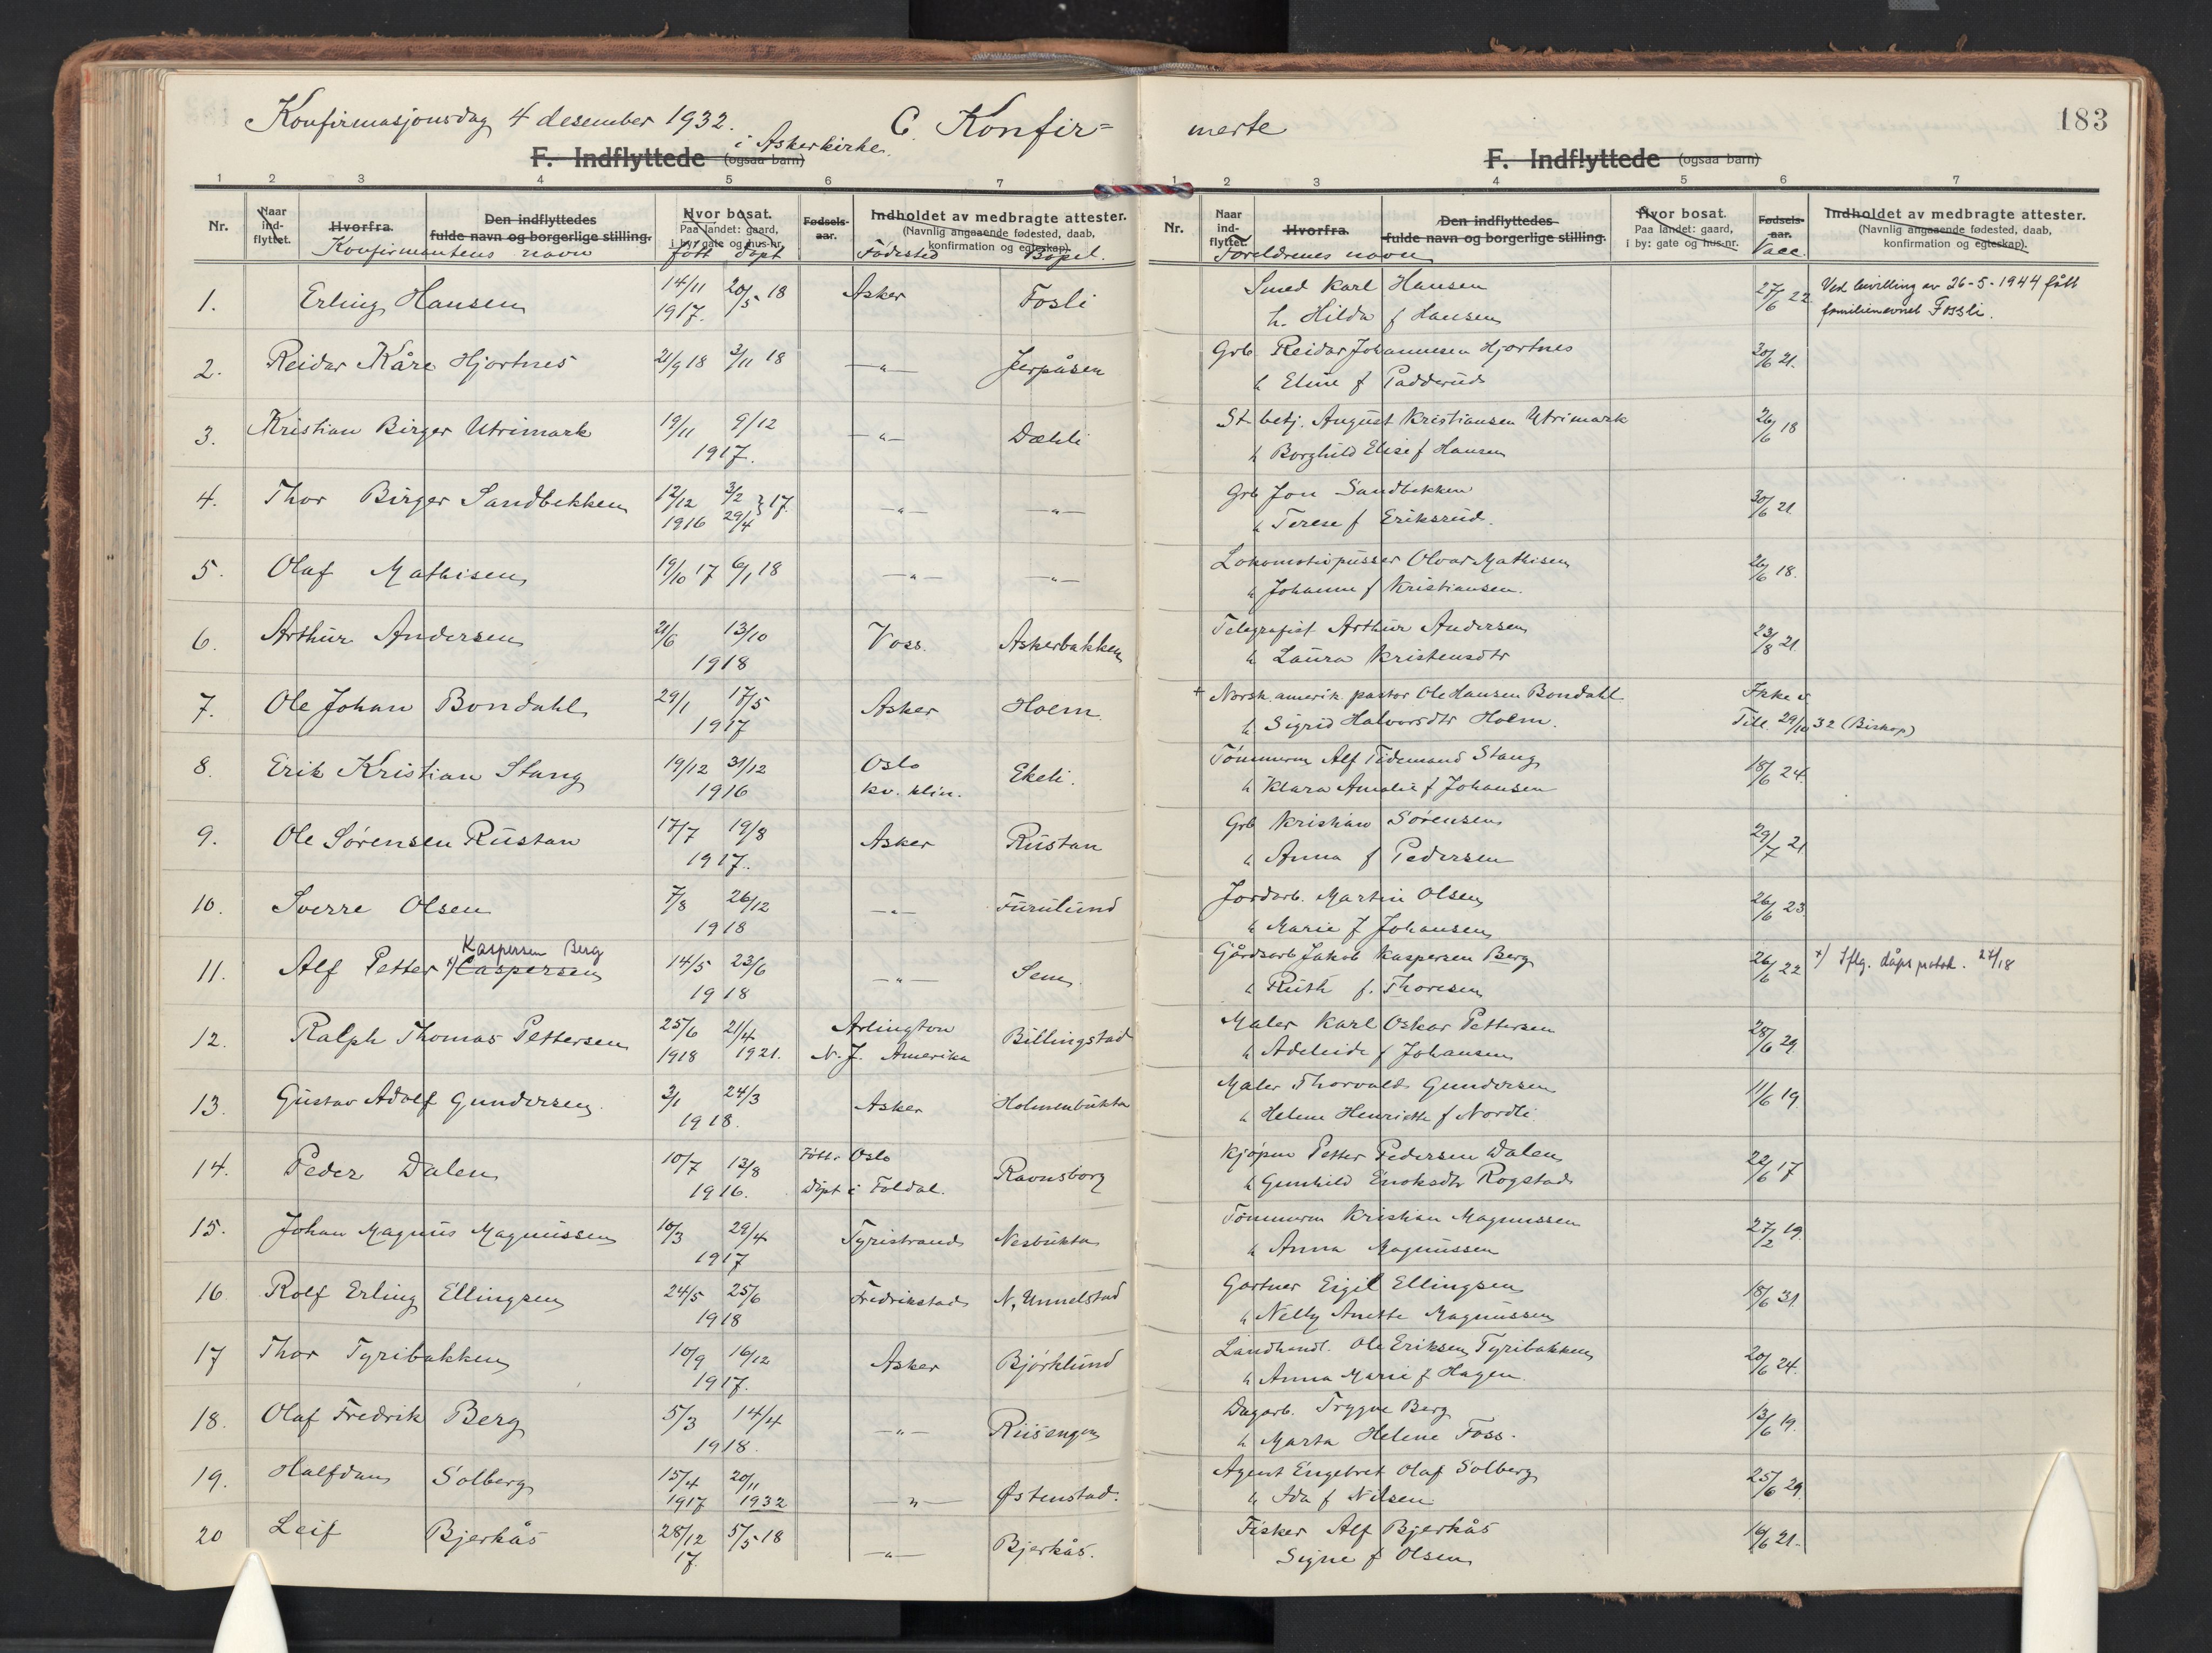 183
Konfirmasjonsdag 4 desember 1932. C. Konfir= merte
i Askerkirke.
F. Indflyttede (ogsaa barn) F. Indflyttede (ogsaa barn)
1 2 3 4 5 6 7 1 2 3 4 5 6 7
Nr. Naar ind-flyttet. Hvorfra. Den indflyttedes fulde navn og borgerlige stilling. Hvor bosat. Paa landet: gaard, i by: gate og hus-nr. Fødsels-aar. Indholdet av medbragte attester. (Navnlig angaaende fødested, daab, konfirmation og egteskap).
Nr. Naar ind-flyttet. Hvorfra. Den indflyttedes fulde navn og borgerlige stilling. Hvor bosat. Paa landet: gaard, i by: gate og hus-nr. Fødsels-aar. Indholdet av medbragte attester. (Navnlig angaaende fødested, daab, konfirmation og egteskap).
Konfirmantens navn født døpt Fødested Bopel. Foreldrenes navn Vacc.
1. Erling Hansen 14/11 1917. 20/5 18 Asker Fosli Smed Karl Hansen 27/6 22 Ved bevilling av 26-5-1944 fått
h. Hilda f Hansen familienavnet Fossli.
2. Reidar Kåre Hjortnes 21/9 18 3/11 18 -"- Jerpåsen Grb Reidar Johannesen Hjortnes 30/6 21.
h Eline f Padderud
3. Kristian Birger Utrimark 19/11 9/12 1917. -"- Dæhli St. betj. August Kristiansen Utrimark 26/6 18
h Borghild Elise f Hansen
4. Thor Birger Sandbekken 12/12 1916 3/2 29/4 } 17. -"- -"- Grb Jon Sandbekken 30/6 21
h Terese f Eriksrud.
5. Olaf Mathisen 19/10 17 6/1 18 -"- -"- Lokomotivpusser Olvar Mathisen 26/6 18.
h Johanne f Kristiansen.
6. Arthur Andersen 21/6 13/10 1918 Voss. Askerbakken Telegrafist Arthur Andersen 23/8 21
h Laura Kristensdtr
7. Ole Johan Bondahl 29/1 17/5 1917 Asker Holm. + Norsk. amerik. pastor Ole Hansen Bondahl Ikke v.
h. Sigrid Halvorsdtr Holm. Till. 29/10 32 (Biskop)
8. Erik Kristian Stang 19/12 31/12 1916 Oslo kv. klin. Ekeli. Tømmerm Alf Tidemand Stang 18/6 24.
h Klara Amalie f Johansen
9. Ole Sørensen Rustan 17/7 19/8 1917. Asker Rustan Grb Kristian Sørensen 29/7 21
h Anna f Pedersen
10. Sverre Olsen 7/8 26/12 1918 -"- Furulund Jordarb. Martin Olsen 26/6 23.
h Marie f Johansen
Kaspersen Berg
11. Alf Petter x) Caspersen 14/5 23/6 1918 -"- Sem. Gårdsarb Jakob Kaspersen Berg 26/6 22 x) Iflg. dåps protok. 27/18
h Ruth f. Thoresen
12. Ralph Thomas Pettersen 25/6 1918 21/4 1921. Arlington N. J. Amerika Billingstad Maler Karl Oskar Pettersen 28/6 29.
h Adeleide f Johansen
13. Gustav Adolf Gundersen. 3/1 24/3 1918. Asker Holmenbukta Maler Thorvald Gundersen 11/6 19.
h Helene Henriette f Nordli
14. Peder Dalen 10/7 13/8 1916. Født i Oslo Døpt i Foldal. Ravnsborg Kjøpm Petter Pedersen Dalen 22/6 17
h Gunhild Enoksdtr Rogstad
15. Johan Magnus Magnussen 10/3 29/4 1917 Tyristrand Nesbukta Tømmerm Kristian Magnussen 27/2 19.
h Anna Magnussen
16. Rolf Erling Ellingsen 24/5 25/6 1918 Fredrikstad N. Unnelstad Gartner Eigil Ellingsen 18/6 31.
h Nelly Anette Magnussen
17 Thor Tyribakken 10/9 16/12 1917. Asker Bjørklund Landhandl. Ole Eriksen Tyribakken 20/6 24.
h Anna Marie f Hagen
18. Olaf Fredrik Berg 5/3 14/4 1918. -"- Riisengen Dagarb. Trygve Berg 13/6 19.
h Marta Helene Foss.
19. Halfdan Solberg 15/4 1917 20/11 1932 -"- Østenstad. Agent Engebret Olaf Solberg 25/6 29.
h Ida f Nilsen
20 Leif Bjerkås 28/12 17. 5/5-18 -"- Bjerkås. Fisker Alf Bjerkås 16/6 21.
Signe f Olsen